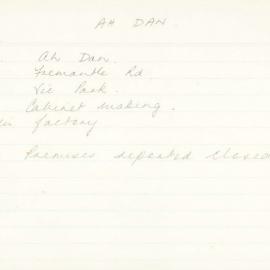 AH DAN.
Ah Dan.
Fremantle Rd
Vic Park.
Cabinet making.
factory
Premises reported closed